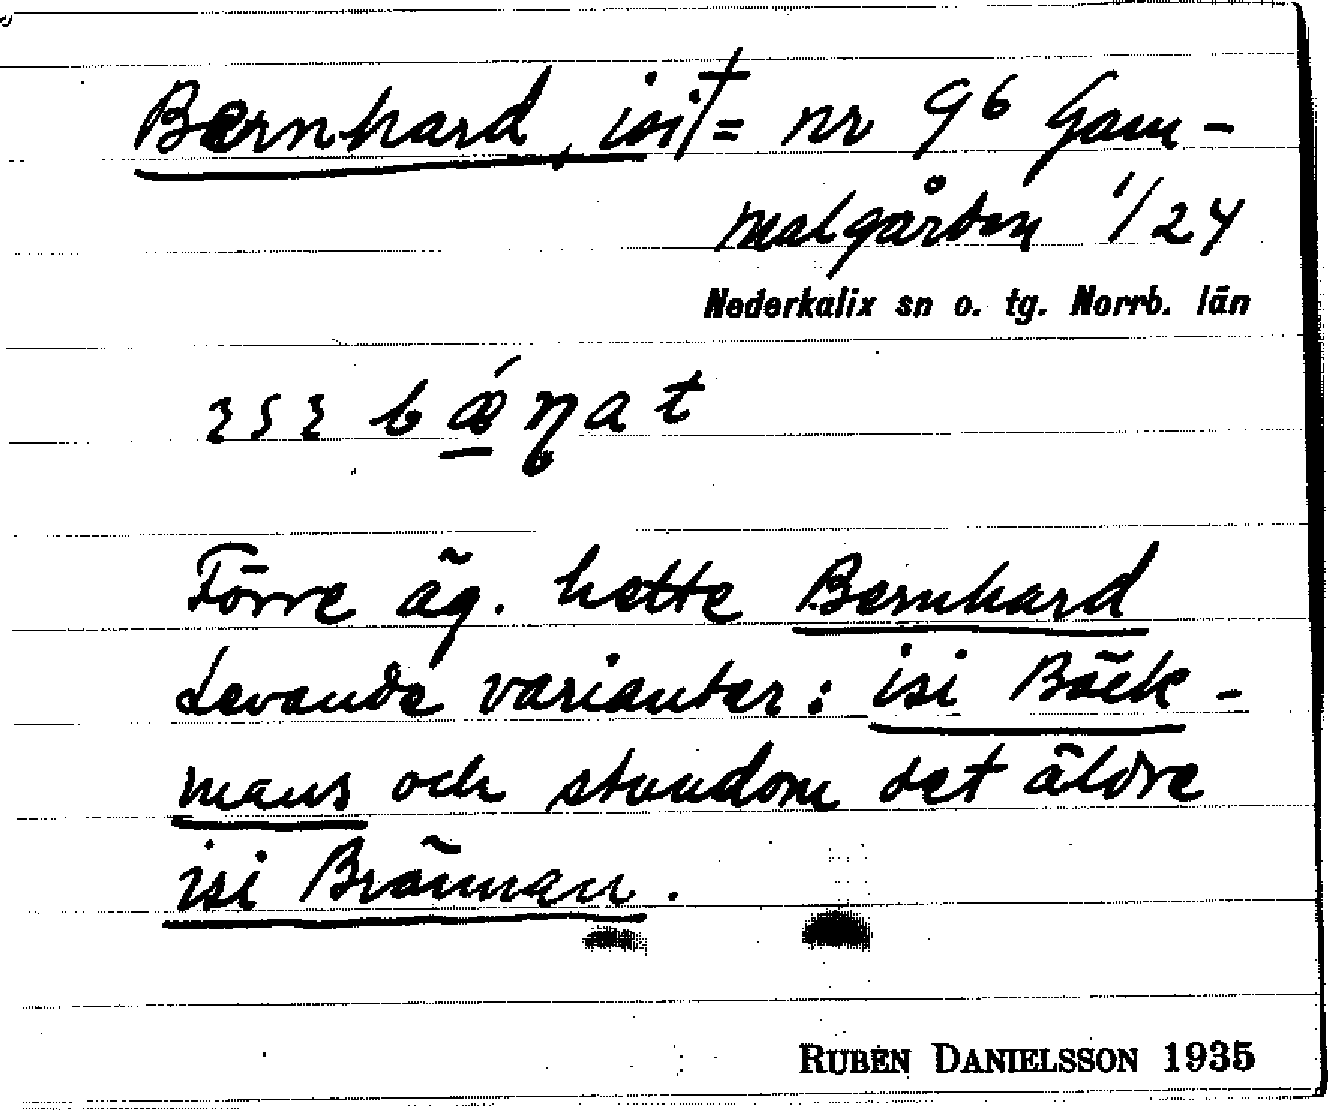 Bernhard, isi † = nr 96 Gam-
malgården 1/24
Nederkalix sn o. tg. Norrb. län
ɪsɪ bǽn̥at
Förre äg. hette Bernhard
Levande varianter: isi Bäck-
mans och stundom det äldre
isi Brännan.
RUBEN DANIELSSON 1935